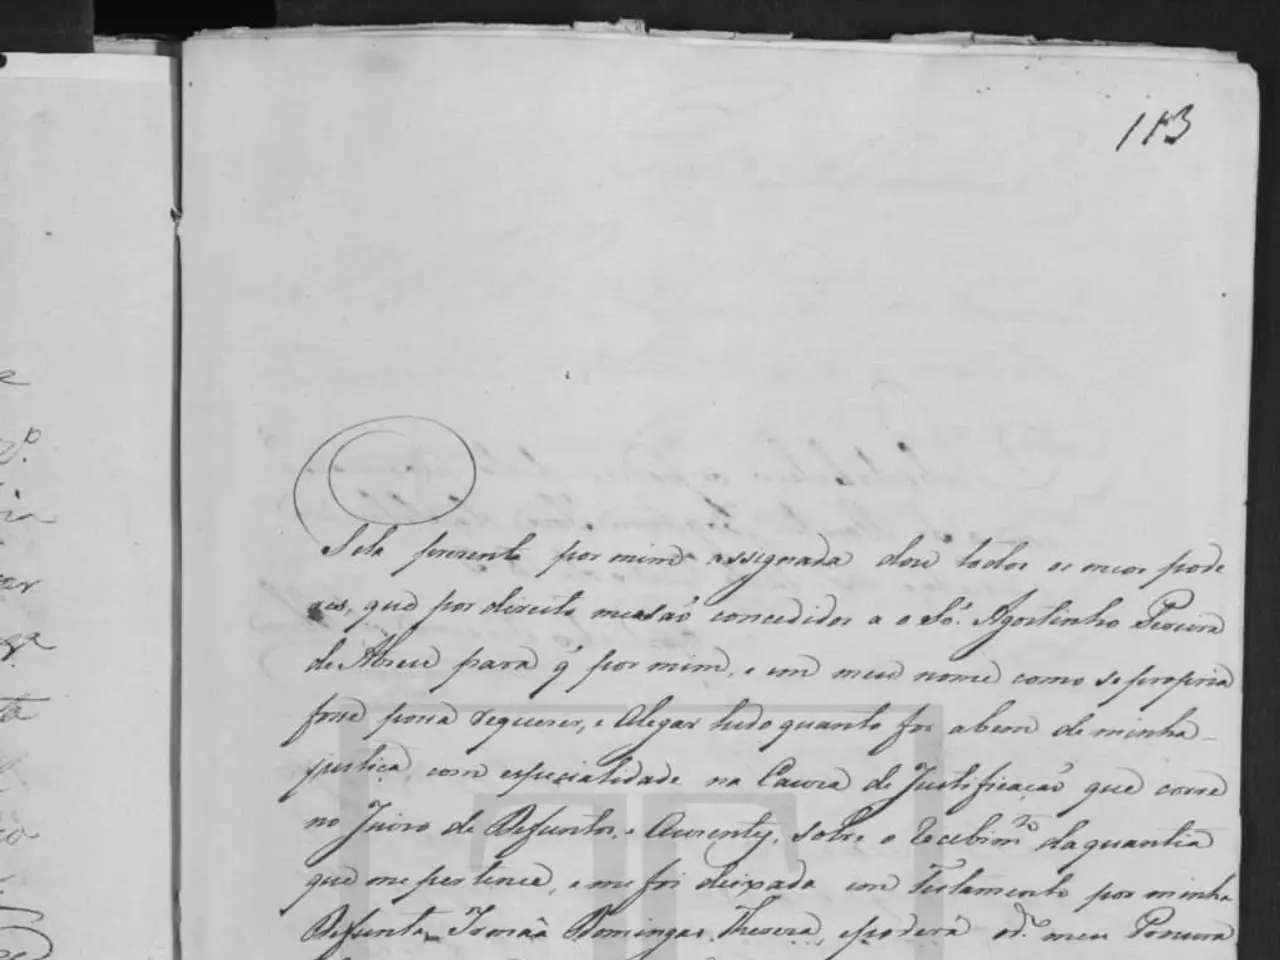 113
Pela presente por mim assignada dou todos os meos pode
res, que por direito me são concedidos a o Sr. Agostinho Pereira
de Abreu para q' por mim, e em meu nome como se propria
fosse possa requerer, e Alegar tudo quanto for abem de minha
justiça, com especialidade na Cauza de Justificação que corre
no Juizo de Defuntos, e Auzentes, sobre o recebimto daquantia
que me pertence, e me foi deixada em Testamento por minha
Defunta Irmãa Domingas Thereza, e poderá od.º meu Procura